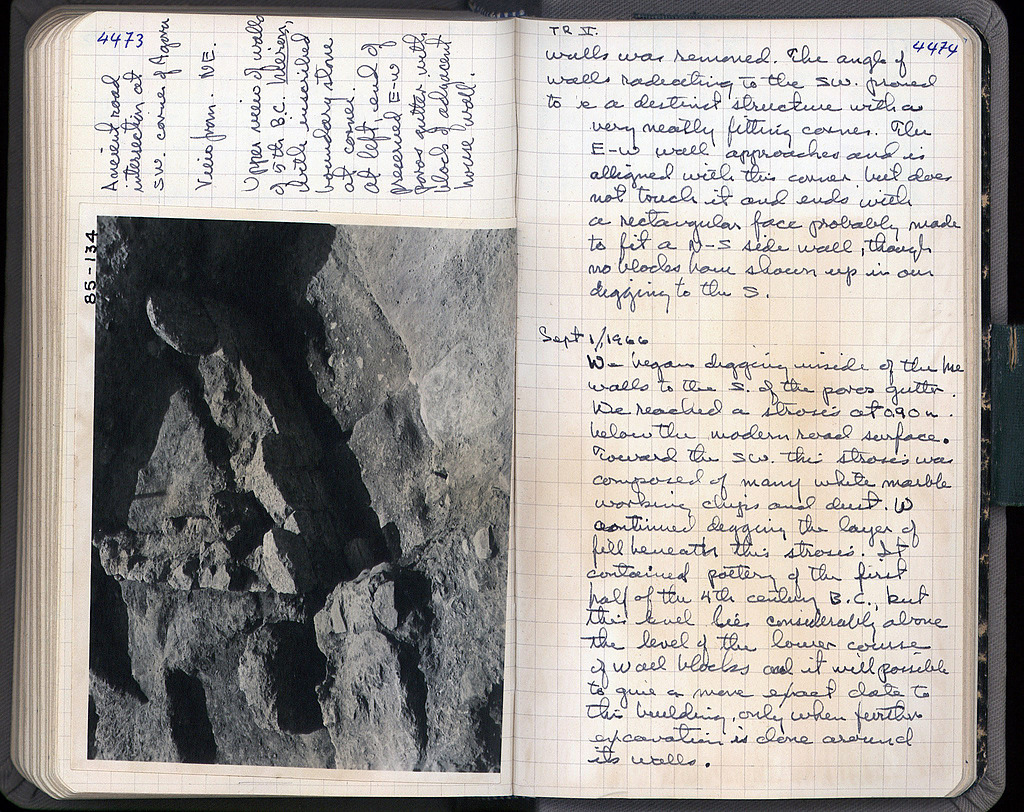 4473
Ancient road
intersection at
SW. corner of Agora
View from NE.
Upper view of walls
of 5th B.C. Triangle
with inscribed
boundary stone
at corner.
at left end of
preserved E-W
poros gutter with
block of adjacent
house wall.
85-134
TR V.
4474
walls was removed. The angle of
walls radiating to the SW. proved
to be a distinct structure with a
very neatly fitting corner. The
E-W wall approaches and is
alligned with this corner but does
not touch it and ends with
a rectangular face probably made
to fit a N-S side wall, though
no blocks have shown up in our
digging to the S.
Sept 1/1966
We began digging inside of the
walls to the S. of the poros gutter.
We reached a strosis at 0.90 m.
below the modern road surface.
Toward the SW. this strosis was
composed of many white marble
working chips and dust. W
continued digging the layer of
fill beneath this strosis. It
contained pottery of the first
half of the 4th century B.C., but
this level lies considerably above
the level of the lower course
of wall blocks and it will possible
to give a more exact date to
this building, only when further
excavation is done around
its walls.